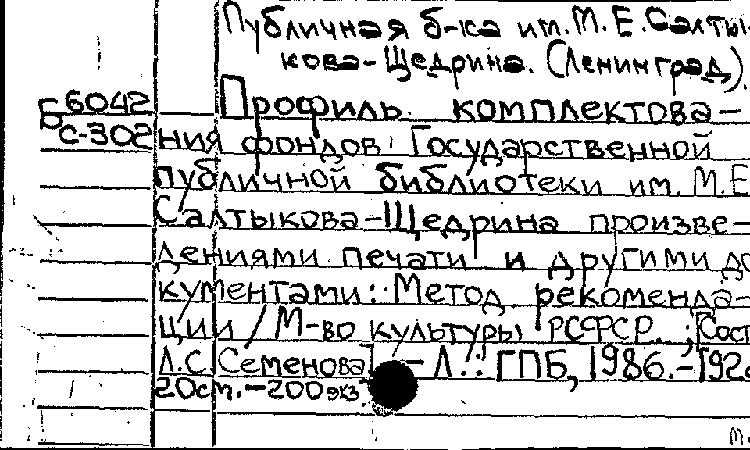 Публичная б-ка им. М. Е. Салты-
кова-Щедрина. (Ленинград).
Б6042 Профиль комплектова-
С-302 ния фондов Государственной
публичной библиотеки им. М.Е
Салтыкова-Щедрина произве-
дениями печати и другими до
кументами: Метод. рекоменда-
ции / М-во культуры РСФСР. ; [Сост
Л.С. Семенова]. – Л.: ГПБ, 1986.-192с
20см.-200экз.
м.